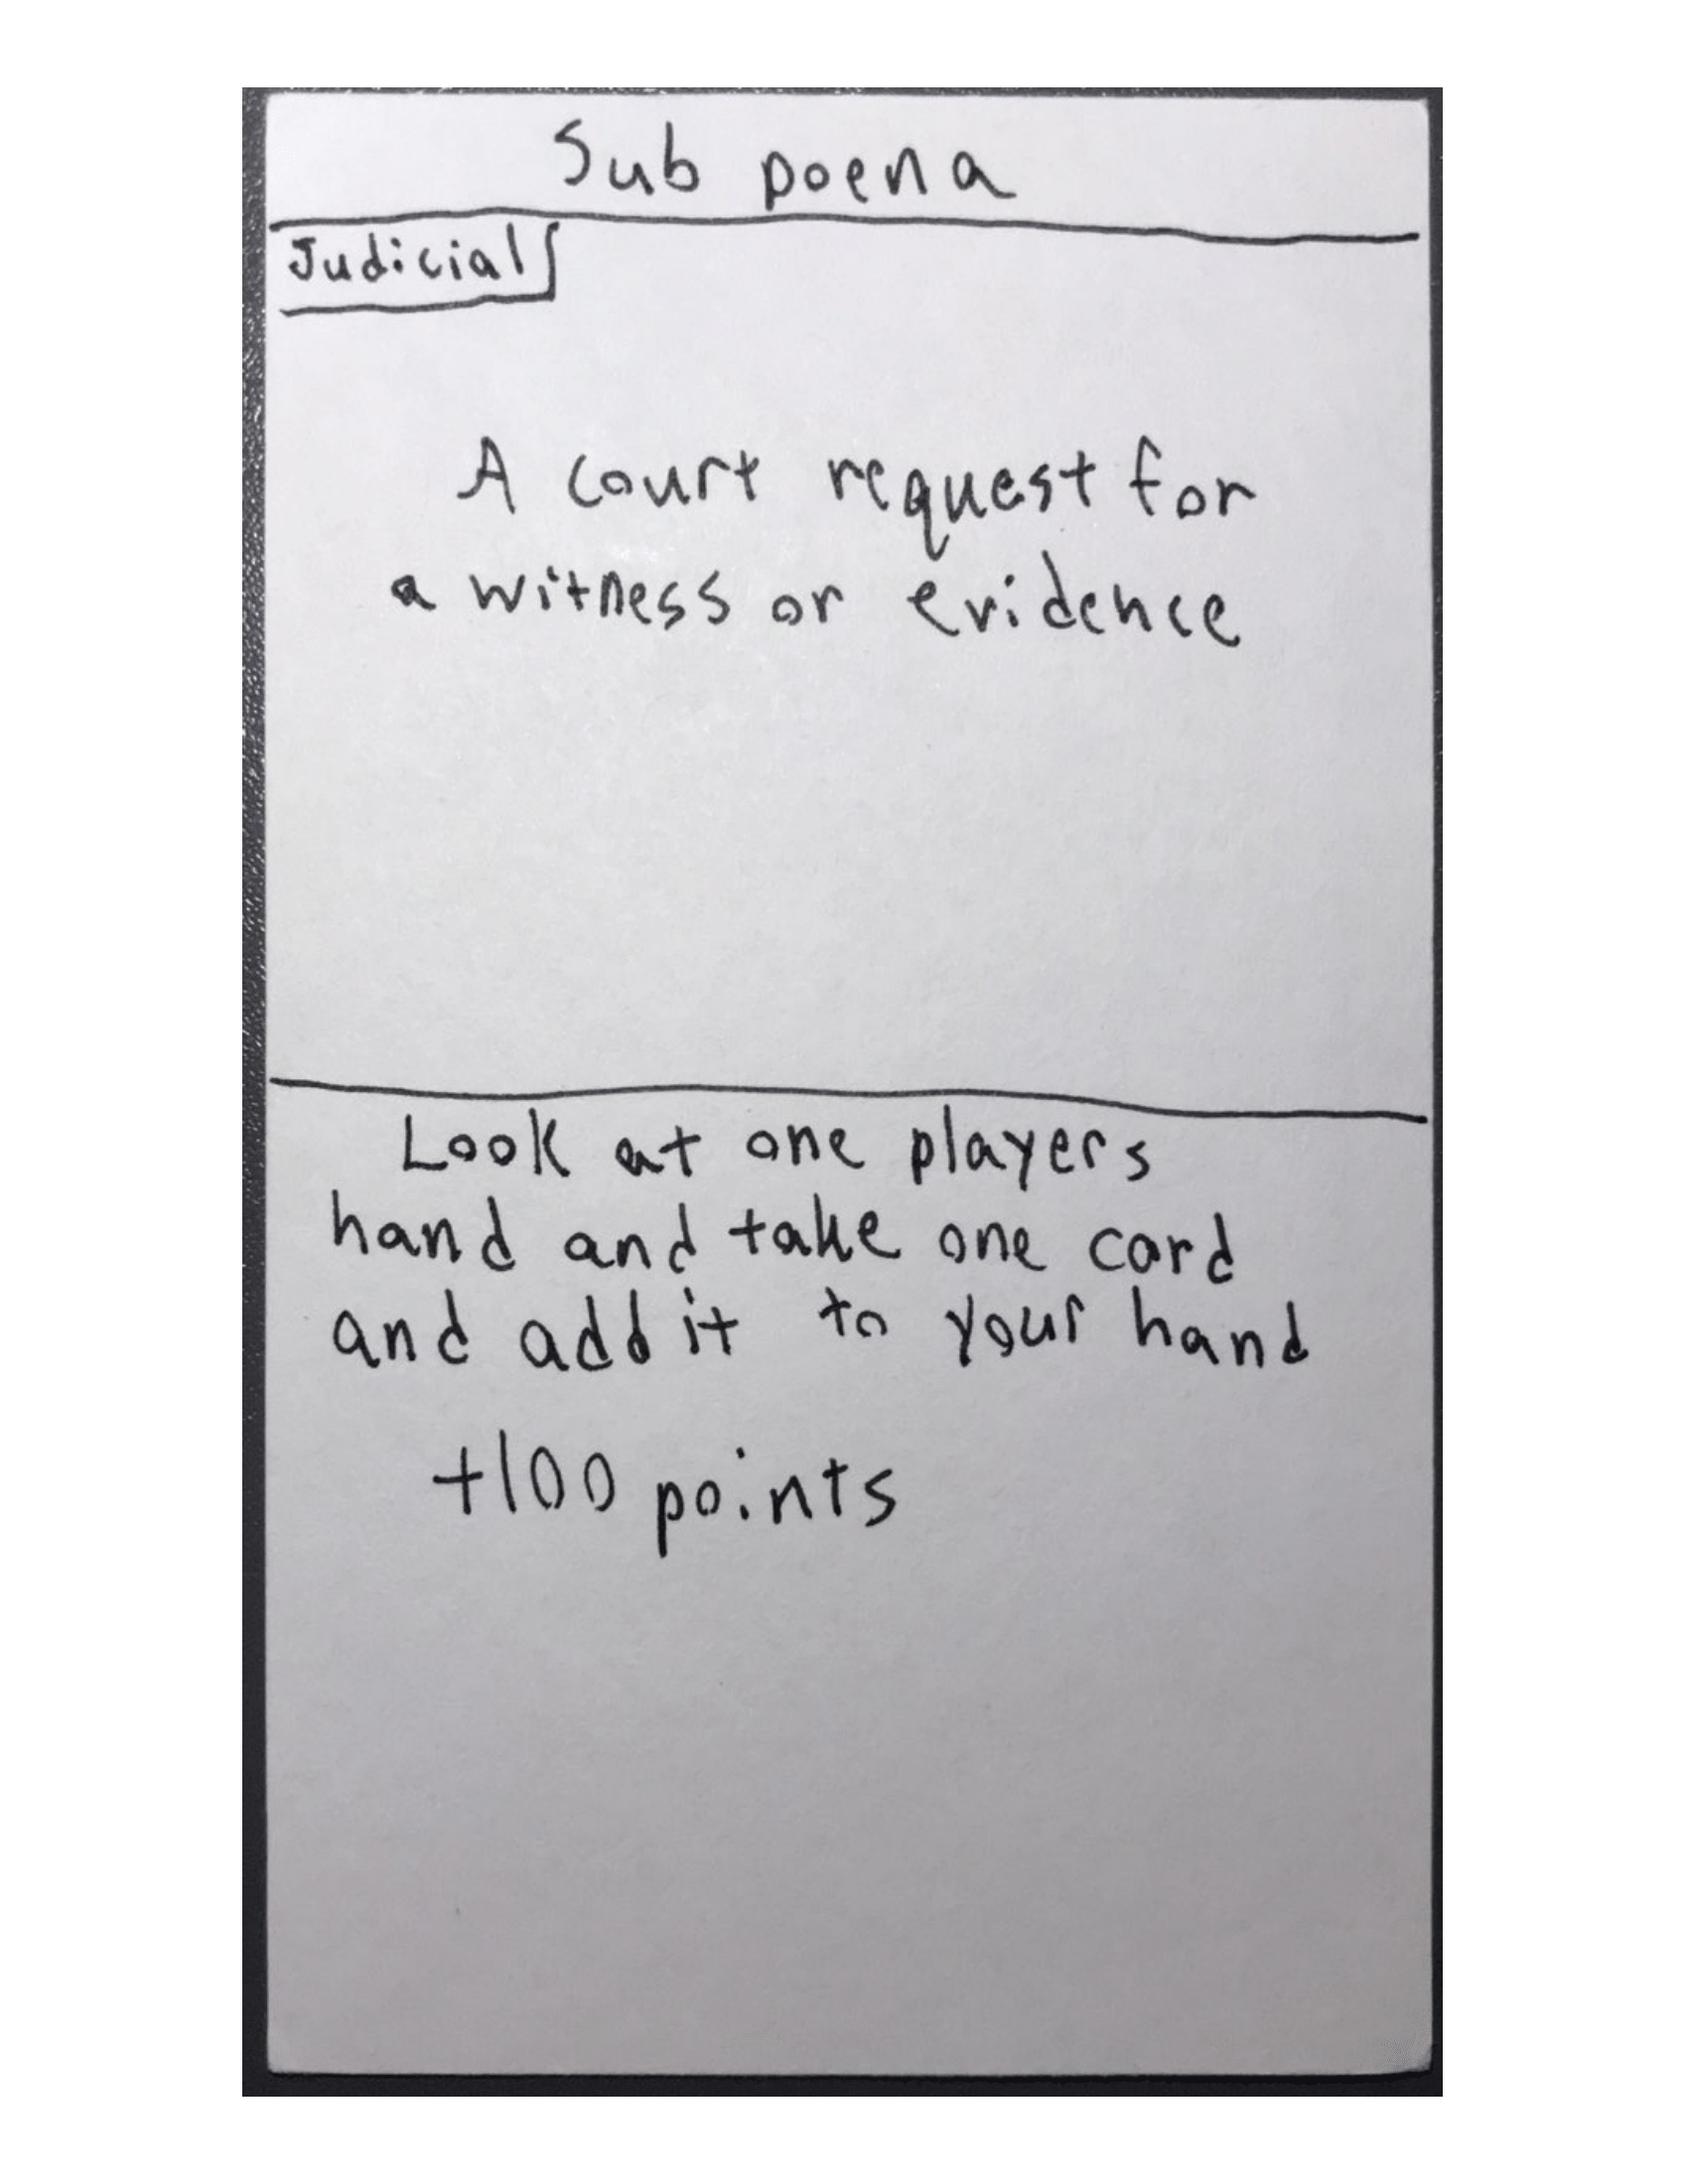 Sub poena
Judicial
A court request for
a witness or evidence
Look at one players
hand and take one card
and add it to your hand
+100 points